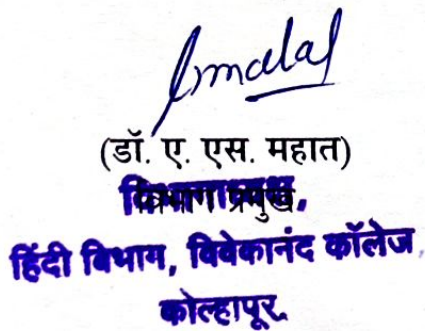 (डॉ. ए. एस. महात)
विभाग प्रमुख
हिंदी विभाग, विवेकानंद कॉलेज
कोल्हापूर.